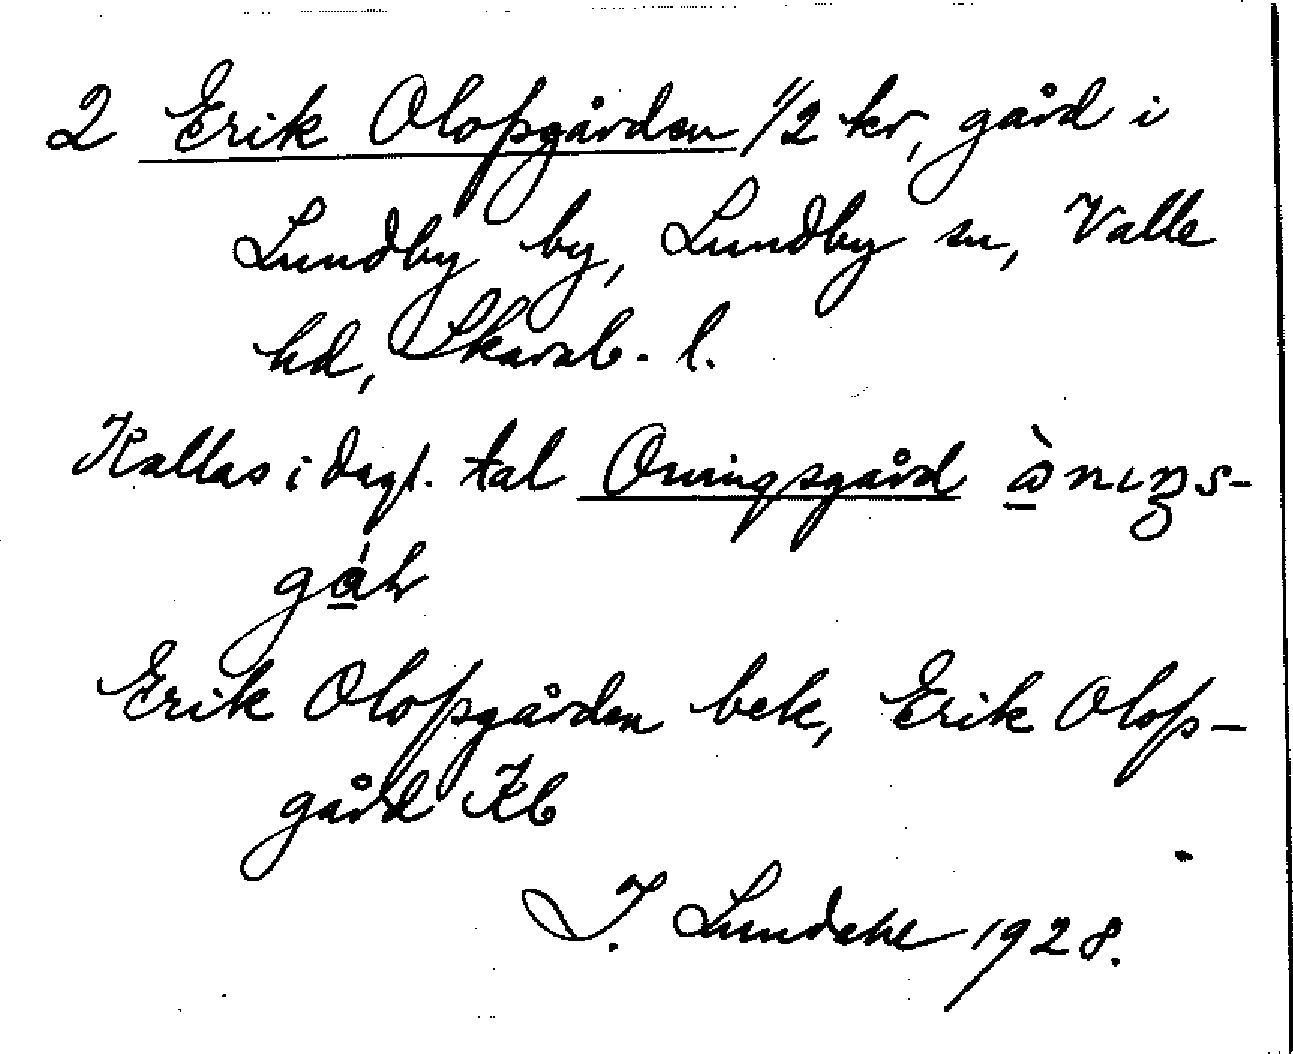 2 Erik Olofsgården 1/2 kr, gård i
Lundby by, Lundby sn, Valle
hd, Skarab. l.
Kallas i dagl. tal Oningsgård
Erik Olofsgården bek, Erik Olofs-
gård Kb
I. Lundahl 1928.